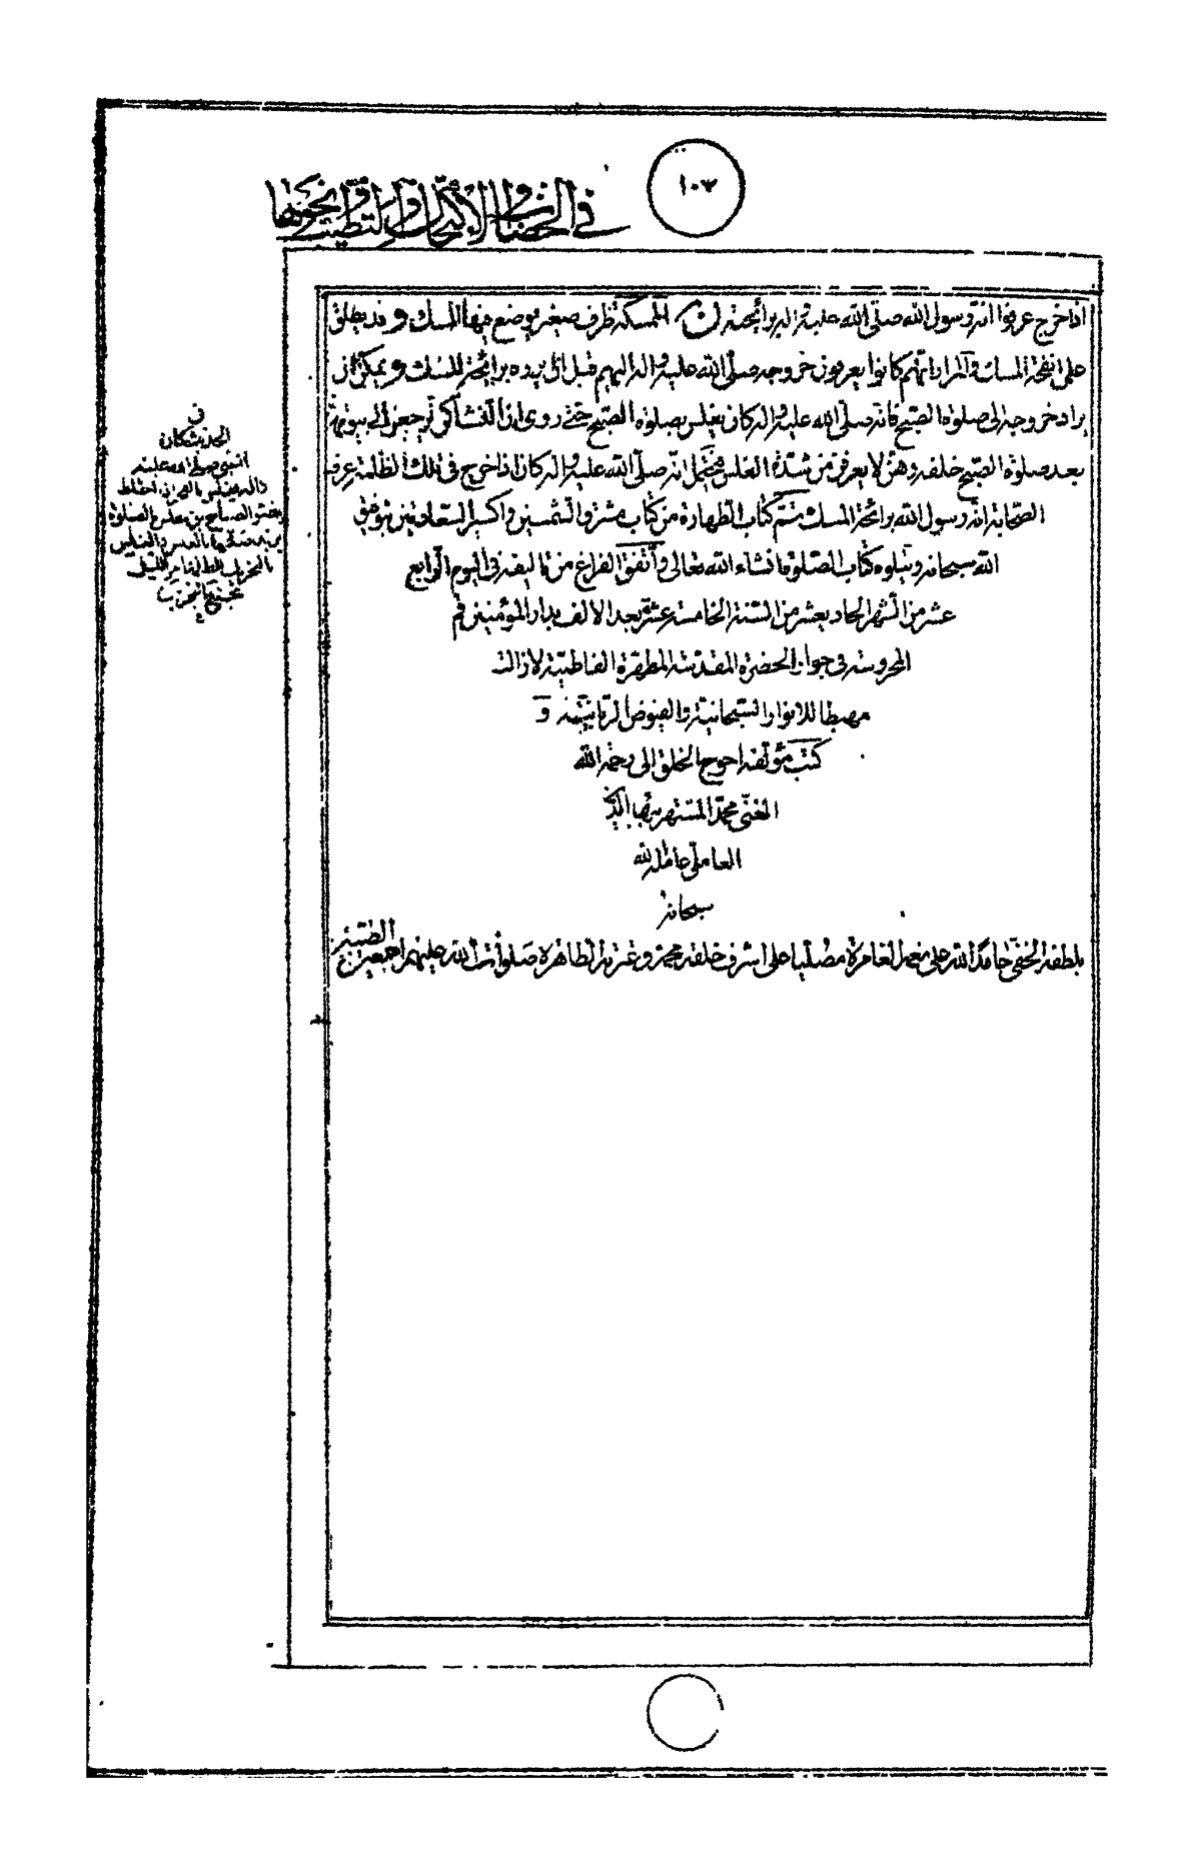 ١٠٣
في الخضاب والاكتحال والتطيب ونحوها
اذا خرج عرفوا انه رسول الله صلى الله عليه واله برائحته ن الممسكة ظرف صغير يوضع فيها المسك وقد يطلق
على نفحة المسك والمراد انهم كانوا يعرفون خروجه صلى الله عليه واله اليهم قبل ان يروه برائحة المسك ويمكن ان
يراد خروجه الى صلوة الصبح فانه صلى الله عليه واله كان يغلس بصلوة الصبح حتى روى ان النساء كن ترجعن الى بيوتهن
بعد صلوة الصبح خلفه وهن لا يعرفن من شدة الغلس فيحتمل انه صلى الله عليه واله كان اذا خرج في تلك الظلمة عرف
الصحابة انه رسول الله برائحة المسك تم كتاب الطهارة من كتاب مشرق الشمسين واكسير السعادتين بتوفيق
الله سبحانه ويتلوه كتاب الصلوة انشاء الله تعالى واتفق الفراغ من تاليفه في اليوم الرابع
عشر من الشهر الحاديعشر من السنة الخامسة عشرة بعد الالف بدار المؤمنين قم
المحروسة في جوار الحضرة المقدسة المطهرة الفاطمية لا زالت
مهبطا للانوار السبحانية والفيوض الربانية و
كتب مؤلفه احوج الخلق الى رحمة الله
الغني محمد المشتهر ببهاء الدين
العاملي عامله الله
سبحانه
بلطفه الخفي حامدا لله على نعمه الغامرة مصليا على اشرف خلقه محمد وعترته الطاهرة صلوات الله عليهم اجمعين
في
الحديث كان
النبي صلى الله عليه